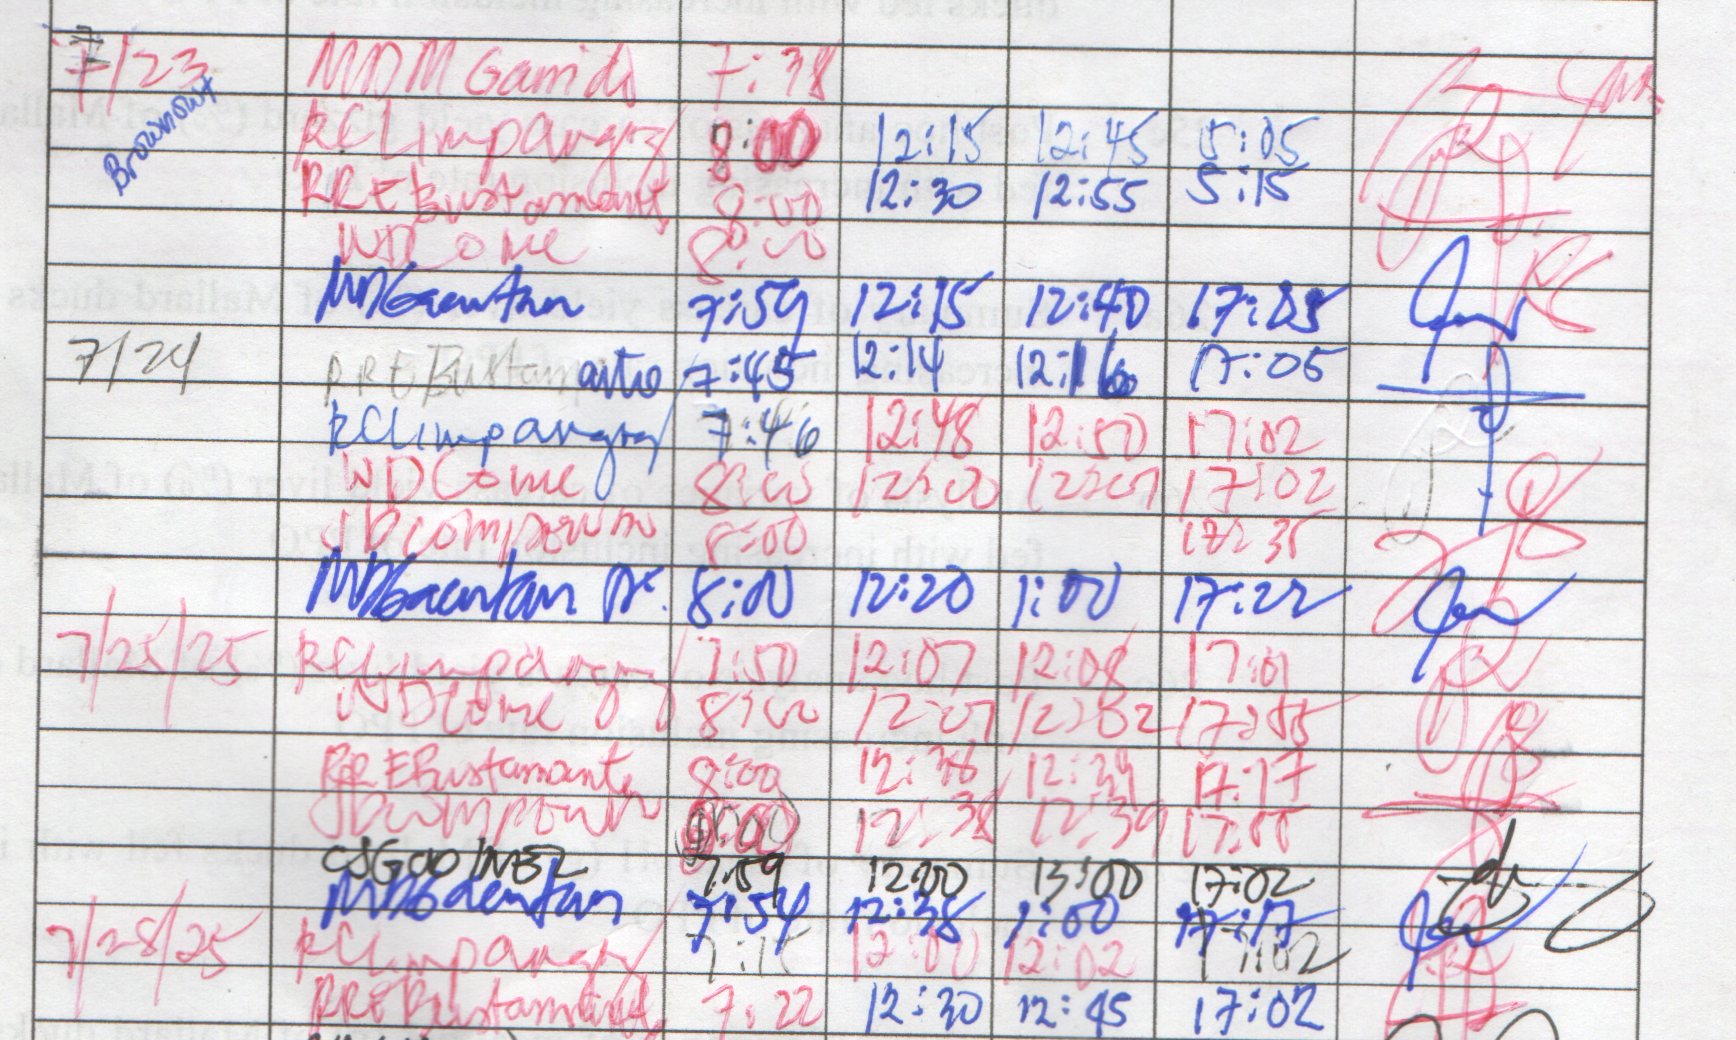 7/23 MDM Garrido 7:38
Brownout RCLimpangog 8:00 12:15 12:45 5:05
RREBustamante 8:00 12:30 12:55 5:15
WDCome 8:00
MDGaentan 7:59 12:15 12:40 17:05
7/24 RREBustamante 7:45 12:14 12:16 17:05
RCLimpangog 7:46 12:48 12:50 17:02
WDCome 8:00 12:00 12:01 17:02
8:00 17:35
MDGaentan Jr. 8:00 12:20 1:00 17:22
7/25/25 RCLimpangog 7:50 12:07 12:08 17:01
WDCome 8:00 12:01 12:02 17:55
RREBustamante 8:00 12:38 12:39 17:17
8:00 12:38 12:39 17:55
7:59 12:00 13:00 17:02
MDGaentan 7:54 12:38 1:00 17:17
7/28/25 RCLimpangog 7:15 12:00 12:02 17:02
RREBustamante 7:22 12:30 12:45 17:02